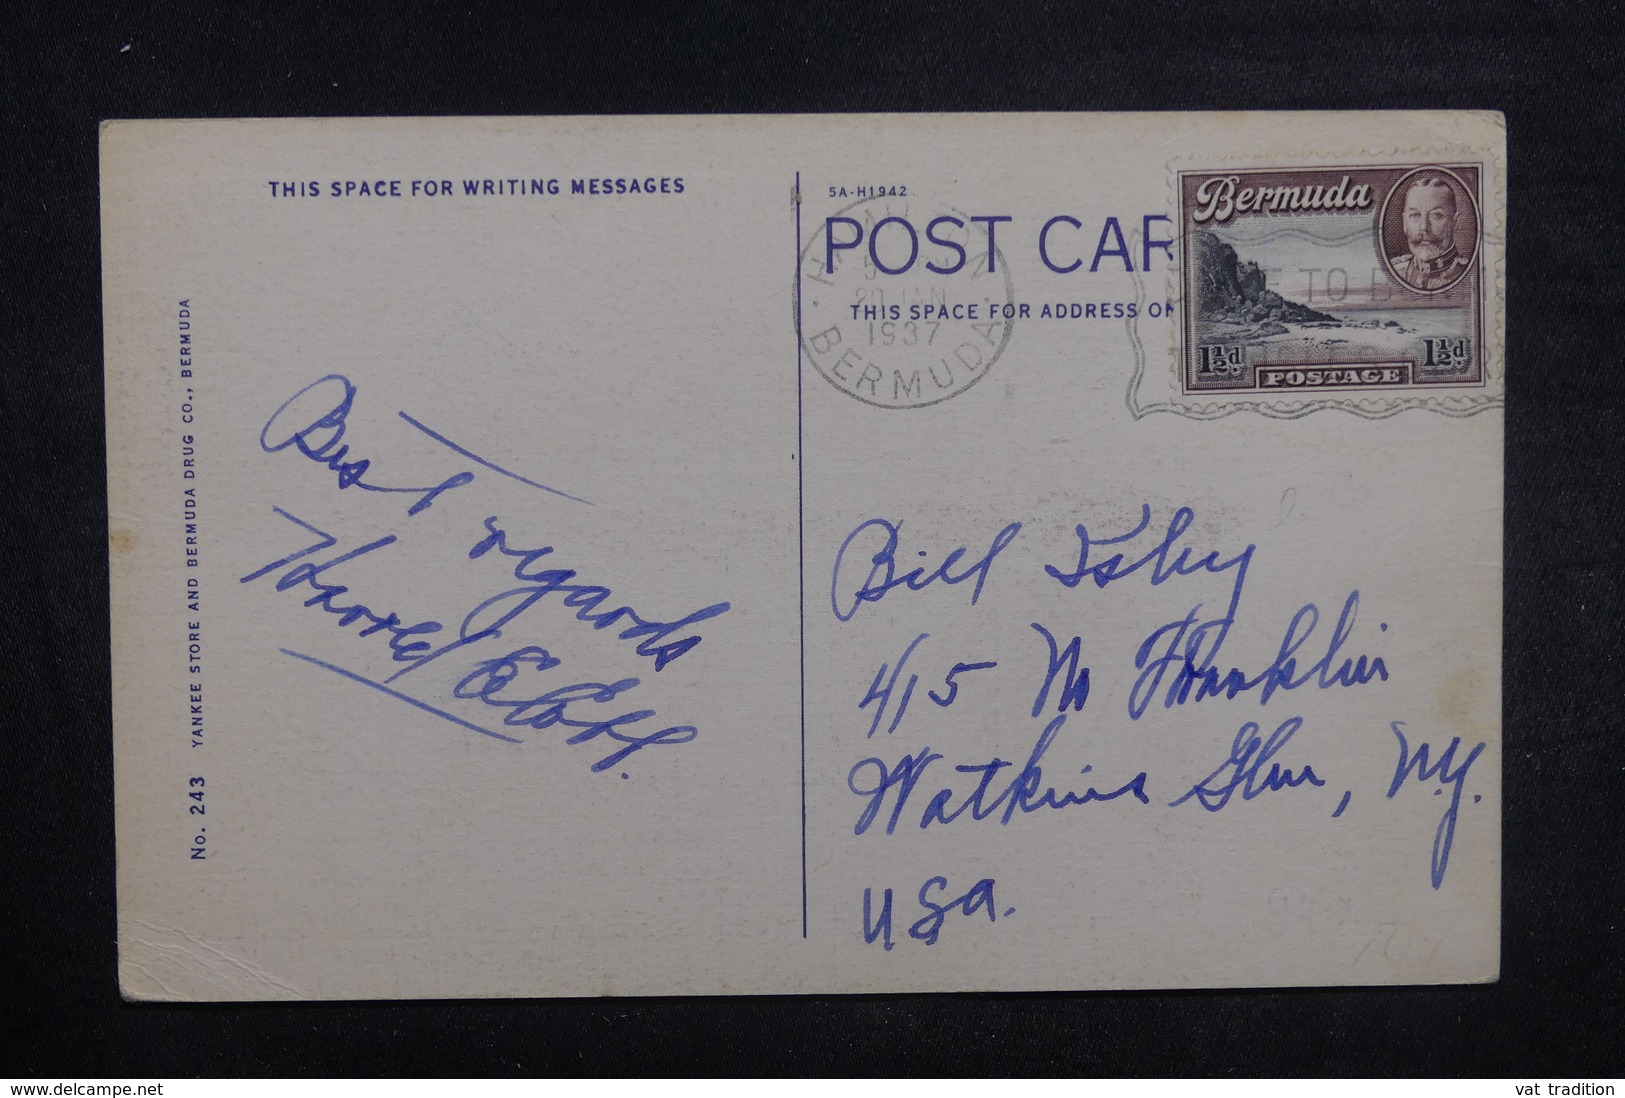 THIS SPACE FOR WRITING MESSAGES
No. 243 YANKEE STORE AND BERMUDA DRUG CO., BERMUDA
Best
regards
5A-H1942
POST CAR
THIS SPACE FOR ADDRESS ON
HAMILTON
20 JAN
1937
BERMUDA
Bermuda
1½d
1½d.
POSTAGE
TO
Bill
415 N Franklin
Watkins Glen, N.Y.
USA.
www.delcampe.net
vat tradition